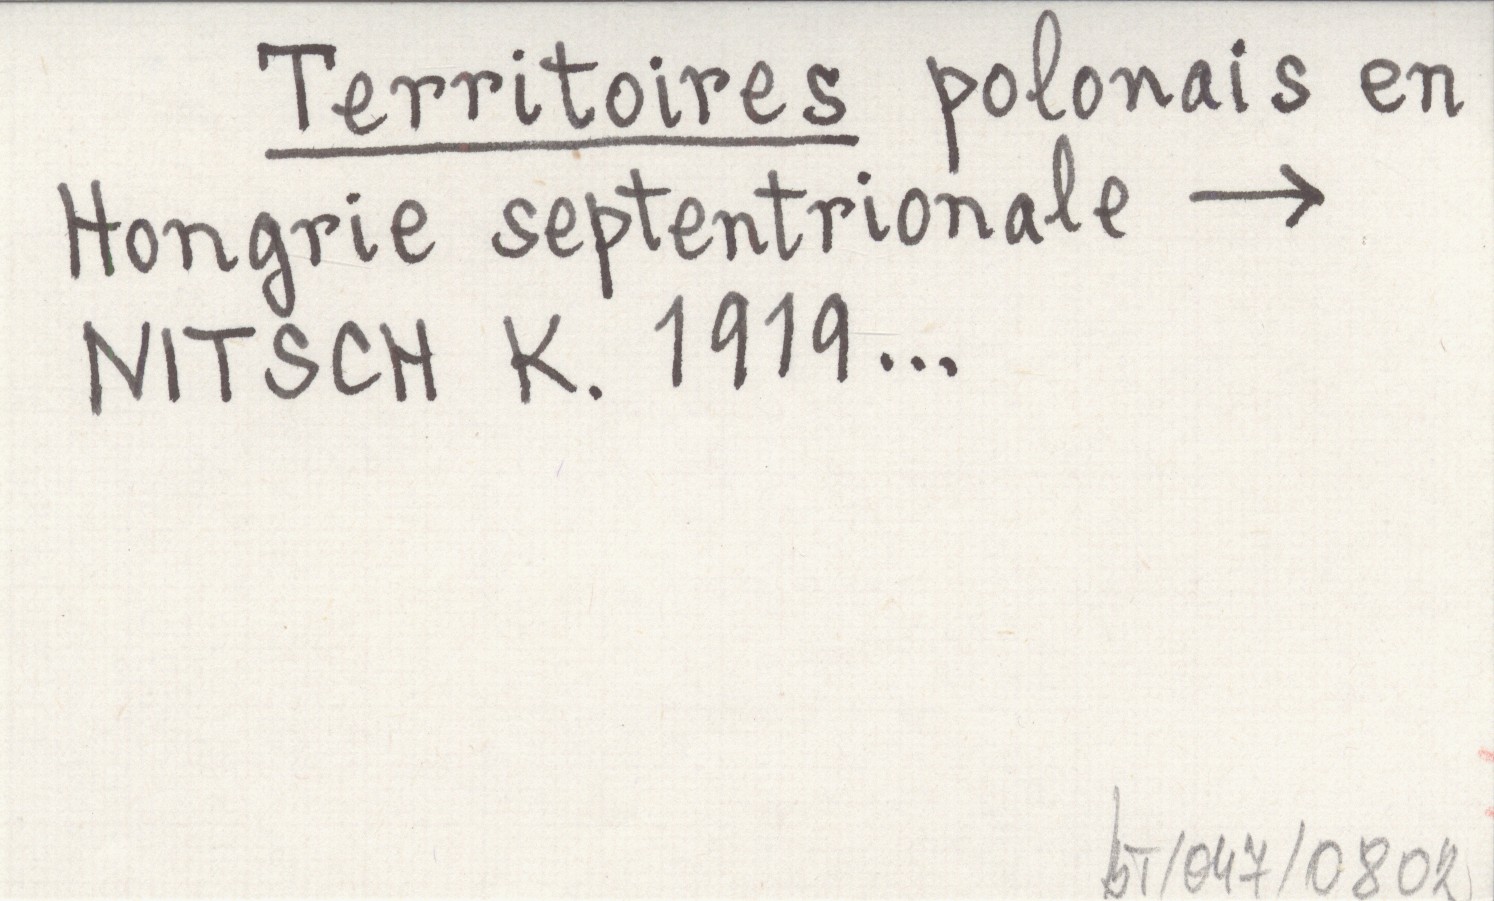 Territoires polonais en
Hongrie septentrionale →
NITSCH K. 1919...
bT/047/0802